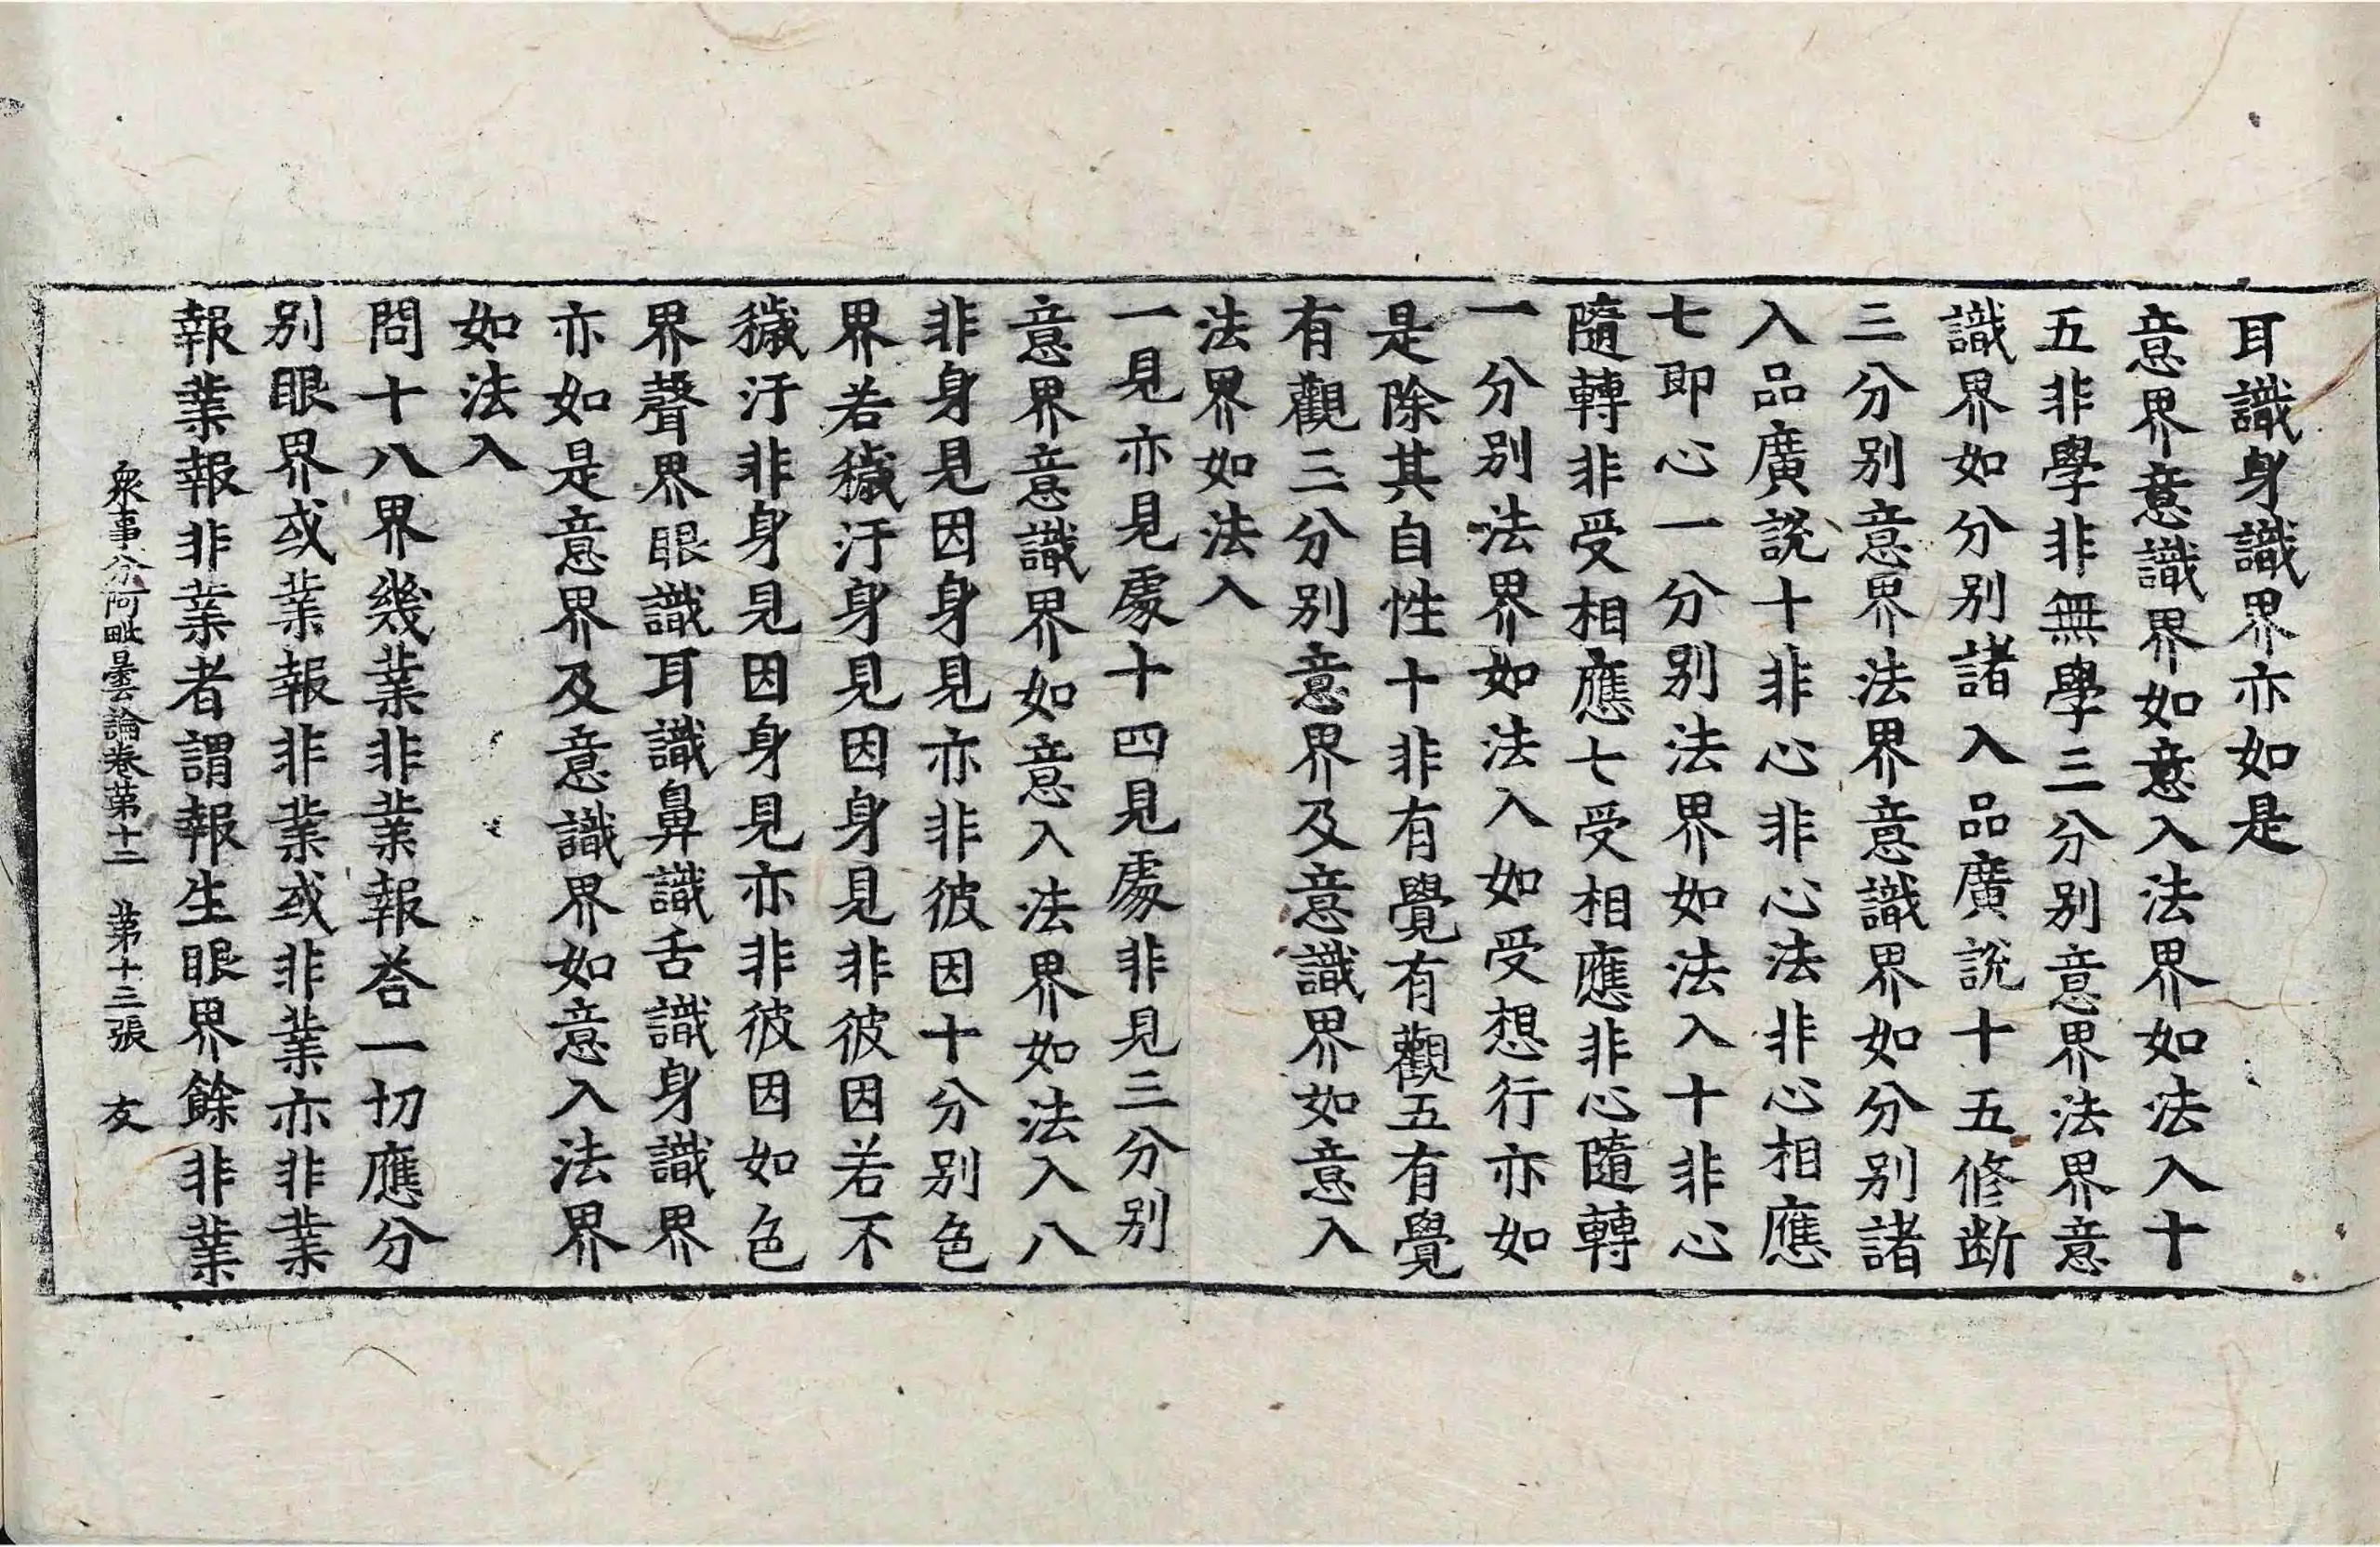 耳識身識界亦如是
意界意識界如意入法界如法入十
五非學非無學三分別意界法界意
識界如分別諸入品廣說十五修斷
三分別意界法界意識界如分別諸
入品廣說十非心非心法非心相應
七即心一分別法界如法入十非心
隨轉非受相應七受相應非心隨轉
一分別法界如法入如受想行亦如
是除其自性十非有覺有觀五有覺
有觀三分別意界及意識界如意入
法界如法入
一見亦見處十四見處非見三分別
意界意識界如意入法界如法入八
非身見因身見亦非彼因十分別色
界若穢汙身見因身見非彼因若不
穢汙非身見因身見亦非彼因如色
界聲界眼識耳識鼻識舌識身識界
亦如是意界及意識界如意入法界
如法入
問十八界幾業非業報荅一切應分
別眼界或業報非業或非業亦非業
報業報非業者謂報生眼界餘非業
衆事分阿毗曇論卷第十二 第十三張 友